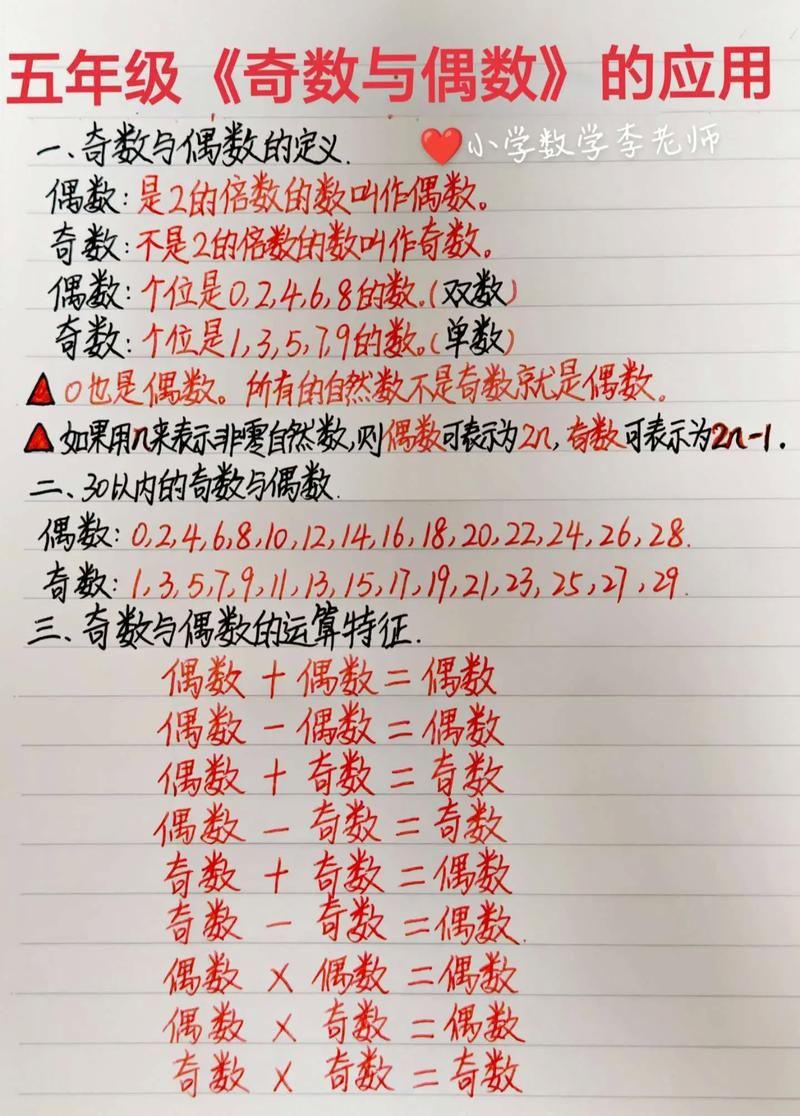 五年级《奇数与偶数》的应用
一、奇数与偶数的定义.
❤️小学数学李老师
偶数:是2的倍数的数叫作偶数。
奇数:不是2的倍数的数叫作奇数。
偶数:个位是0,2,4,6,8的数.(双数)
奇数:个位是1,3,5,7,9的数.(单数)
▲0也是偶数。所有的自然数不是奇数就是偶数。
▲如果用n来表示非零自然数,则偶数可表示为2n,奇数可表示为2n-1.
二、30以内的奇数与偶数.
偶数:0,2,4,6,8,10,12,14,16,18,20,22,24,26,28.
奇数:1,3,5,7,9,11,13,15,17,19,21,23,25,27,29.
三、奇数与偶数的运算特征.
偶数+偶数=偶数
偶数-偶数=偶数
偶数+奇数=奇数
偶数-奇数=奇数
奇数+奇数=偶数
奇数-奇数=偶数.
偶数×偶数=偶数
偶数×奇数=偶数
奇数×奇数=奇数